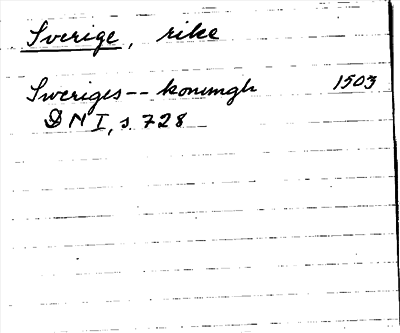 Sverige, rike
Sweriges -- konungh 1503
DN I, s. 728